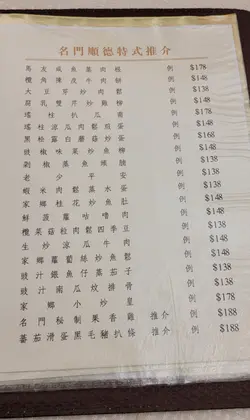 名門順德特式推介
馬友咸魚蒸肉餅 例 $178
欖角陳皮牛肉餅 例 $148
大豆芽炒肉鬆 例 $138
腐乳雙芹炒雞柳 例 $148
瑤柱扒瓜甫 例 $148
瑤柱涼瓜肉鬆煎蛋 例 $148
黑松露白蘑菇炒蛋 例 $168
豉椒味菜炒魚柳 例 $148
剁椒蒸魚 例 $138
老少平安 例 $138
蝦米肉鬆蒸水蛋 例 $138
家鄉桂花炒魚肚 例 $148
鮮菠蘿咕嚕肉 例 $138
欖菜菇粒肉鬆四季豆 例 $138
生炒涼瓜牛肉 例 $148
家鄉蘿蔔絲炒魚鬆 例 $138
豉汁銀魚仔蒸茄子 例 $138
豉汁南瓜炆排骨 例 $138
家鄉小炒皇 例 $138
名門秘制果香雞 推介 例 $188
蕃茄滑蛋黑毛豬扒條 推介 例 $188